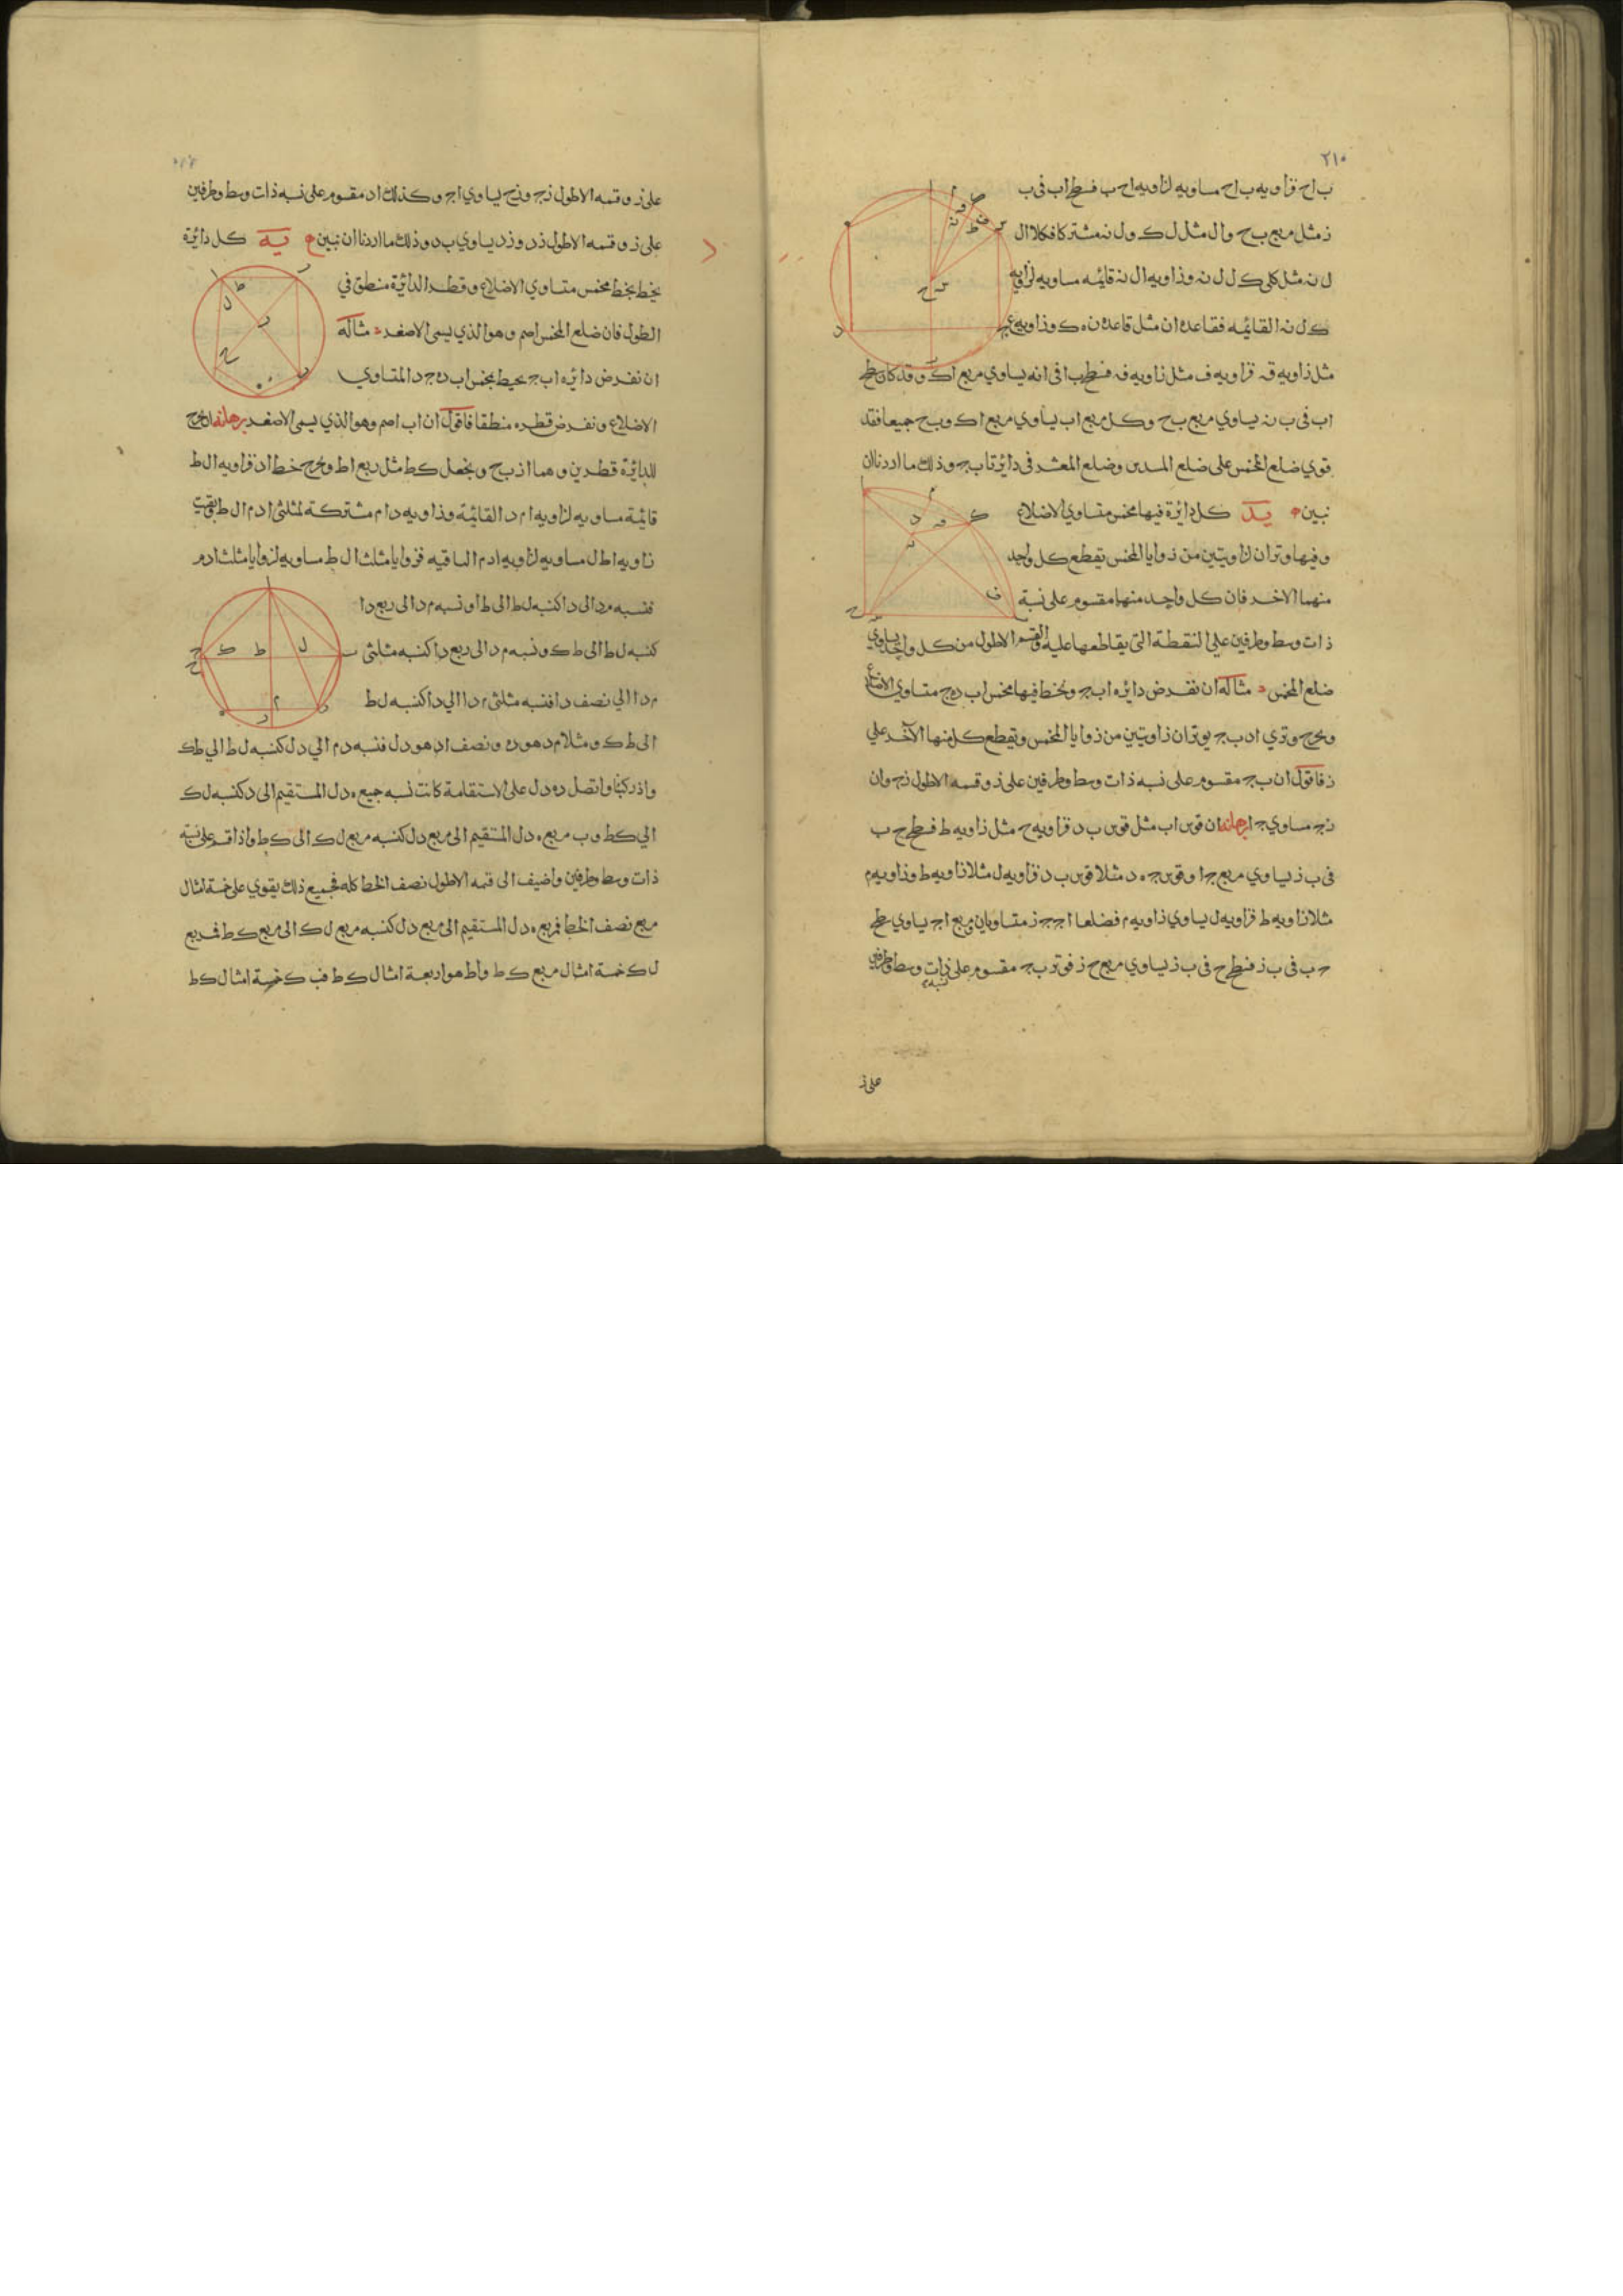 ٢١٠
ب اح فزاويه ب اح مساويه لزاويه اح ب فسطح اب فى ب
ز مثل مربع ب ح وال مثل ل ك ول نه مشترك فكلا ال
ل نه مثل كلى ك ل ل نه وزاويه ال نه قائمه مساويه لزاويه
ك ل نه القايمه فقاعدة ان مثل قاعدة نه ك وزاويه
مثل زاويه قه فزاويه ف مثل زاويه فه فسطح ب ا فى انه يساوي مربع اك وقد كان سطح
اب فى ب نه يساوي مربع ب ح وكل مربع اب يساوي مربع اك وب ح جميعا فقد
قوي ضلع المخمس على ضلع المسدس وضلع المعشر فى دائرة اب ج وذلك ما اردنا ان
نبين يد كل دائرة فيها مخمس متساوي الاضلاع
وفيها وتران لزاويتين من زوايا المخمس يقطع كل واحد
منهما الاخر فان كل واحد منهما مقسوم على نسبة
ذات وسط وطرفين علي النقطة التى يقاطعها عليه والقسم الاطول من كل واحد يساوي
ضلع المخمس مثاله ان نفرض دائره اب ج ونخط فيها مخمس اب ده ج متساوي الاضلاع
ونخرج وتري اد ب ج يوتران زاويتين من زوايا المخمس ويقطع كل منها الآخر علي
ز فاقول ان ب ج مقسوم على نسبه ذات وسط وطرفين على ز وقسمه الاطول زج وان
زج مساوي ج ا برهانه ان قوس اب مثل قوس ب د فزاويه ح مثل زاويه ط فسطح ح ب
فى ب ز يساوي مربع ج ا وقوس ج ه د مثلا قوس ب د فزاويه ل مثلا زاويه ط وزاويه م
مثلا زاويه ط فزاويه ل يساوي زاويه م فضلعا اج ج ز متساويان ومربع اج يساوي سطح
ح ب فى ب ز فسطح ح فى ب ز يساوي مربع ح ز فوتر ب ج مقسوم على نسبه ذات وسط وطرفين
على ز
على ز وقسمه الاطول زج وزح يساوي اج وكذلك اد مقسوم على نسبه ذات وسط وطرفين
على ز وقسمه الاطول زد وزد يساوي ب د وذلك ما اردنا ان نبين يه كل دائرة
يخط بخط مخمس متساوي الاضلاع وقطر الدائرة منطق في
الطول فان ضلع المخمس اصم وهو الذي يسمى الاصغر مثاله
ان نفرض دائره اب ج يحيط بمخمس اب ده ج د المتساوي
الاضلاع ونفرض قطره منطقا فاقول ان اب اصم وهو الذي يسمى الاصغر برهانه ان نخرج
للدائرة قطرين وهما از ب ح ونجعل كط مثل ربع اط ونخرج خط اد فزاويه ال ط
قائمة مساويه لزاويه ام د القائمة وزاويه دام مشتركة لمثلثى ادم ال ط بقيت
زاويه اطل مساويه لزاويه ادم الباقيه فزوايا مثلث ال ط مساويه لزوايا مثلث ادم
فنسبه مد الى دا كنسبه لط الى طا ونسبه م د الى ربع دا
كنسبه ل ط الى ط ك ونسبه م د الى ربع دا كنسبه مثلثى
م د ا الي نصف دا فنسبه مثلثى م د ا الي دا كنسبه ل ط
الى ط ك ومثلا م د هو ده ونصف اد هو دل فنسبه د م الي دل كنسبه ل ط الي طك
واذ ركبنا واتصل ده دل على الاستقامة كانت نسبه جميع ه دل المستقيم الى د كنسبه ل ك
الي كط وب مربع ه دل المستقيم الى مربع دل كنسبه مربع ل ك الى ك ط واذا قسم على نسبة
ذات وسط وطرفين واضيف الى قسمه الاطول نصف الخط كله فجميع ذلك يقوي على خمسة امثال
مربع نصف الخط فمربع ه دل المستقيم الى مربع دل كنسبه مربع ل ك الى مربع ك ط فمربع
ل ك خمسة امثال مربع ك ط واط هو اربعة امثال ك ط ف ب ك خمسة امثال ك ط